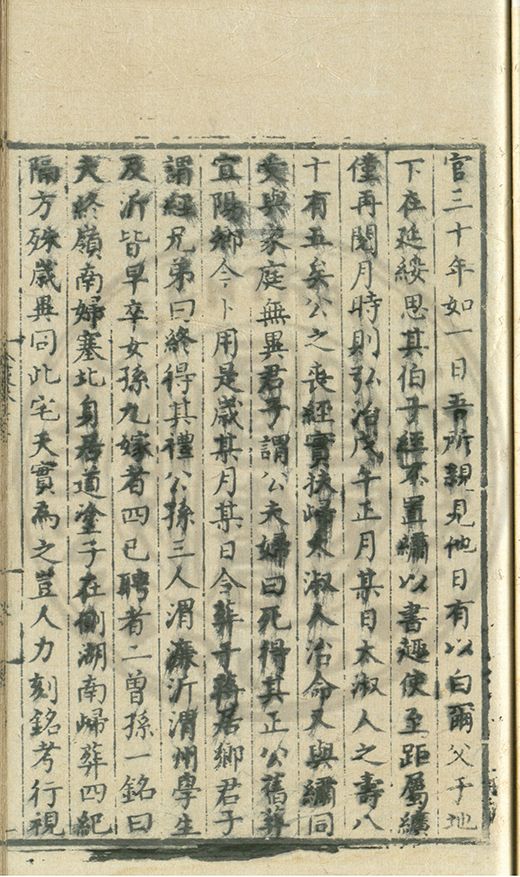 官三十年如一日吾所親見他日有以白爾父于地
下在延綏思其伯子經不置繡以書趣使至距屬纊
僅再閱月時則弘治戊午正月某日太淑人之壽八
十有五矣公之喪經實扶歸太淑人治命又與繡同
爨與家庭無異君子謂公夫婦曰死得其正公舊葬
宜陽鄉今卜用是歲某月某日合葬于蔣居鄉君子
謂經兄弟曰終得其禮公孫三人渭濂沂渭州學生
及沂皆早卒女孫九嫁者四已聘者二曾孫一銘曰
夫終嶺南婦塞北身居道塗子在側湖南歸葬四紀
隔方殊歲異同此宅天實為之豈人力刻銘考行視